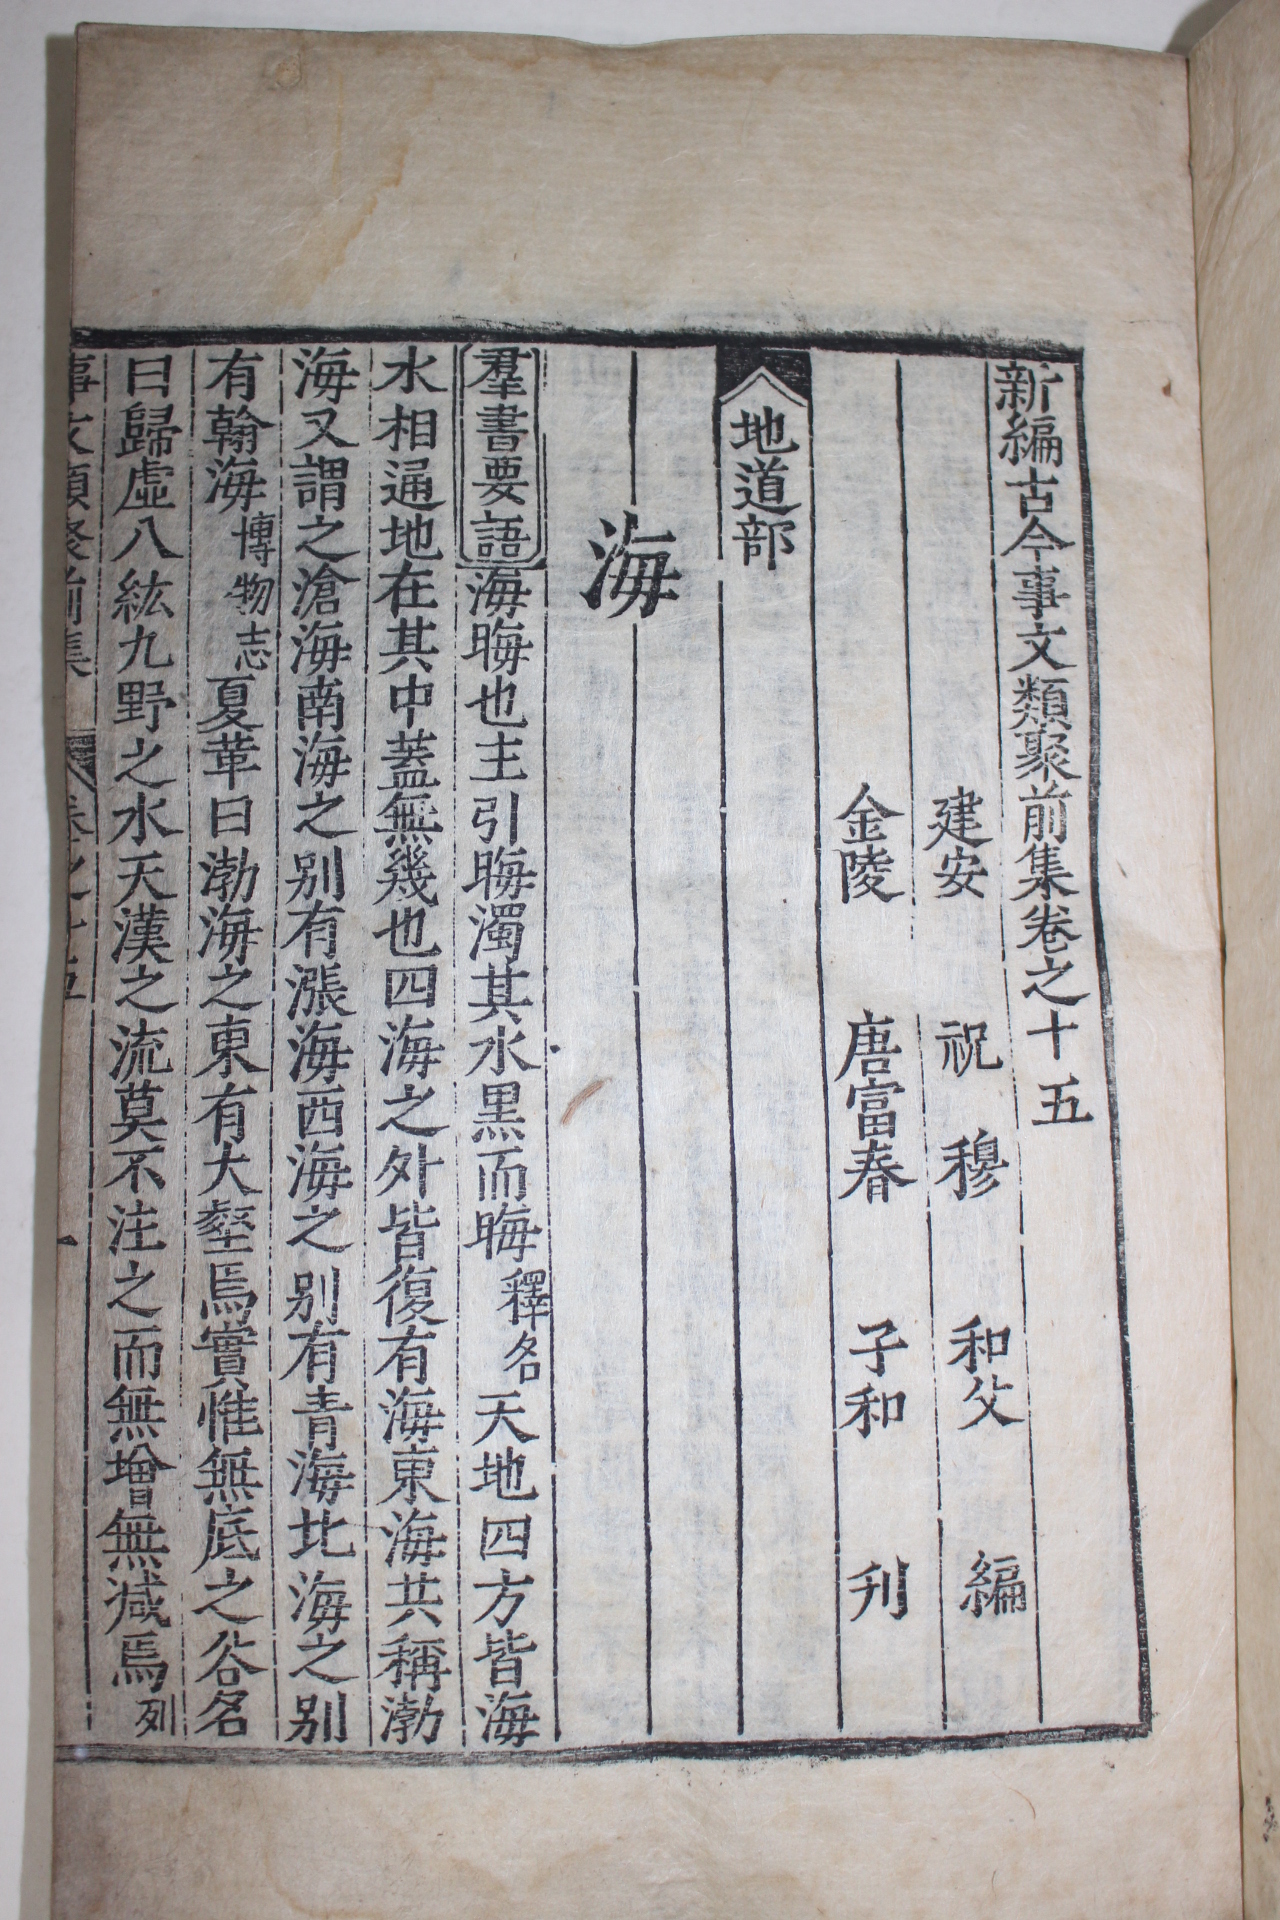 新編古今事文類聚前集卷之十五
建安 祝 穆 和父 編
金陵 唐富春 子和 刋
地道部
海
羣書要語海晦也主引晦濁其水黒而晦釋名天地四方皆海
水相通地在其中蓋無幾也四海之外皆復有海東海共稱渤
海又謂之滄海南海之别有漲海西海之别有青海北海之别
有翰海博物志夏革曰渤海之東有大壑焉實惟無底之谷名
曰歸虛八紘九野之水天漢之流莫不注之而無增無减焉列
事文類聚前集 卷之十五 一